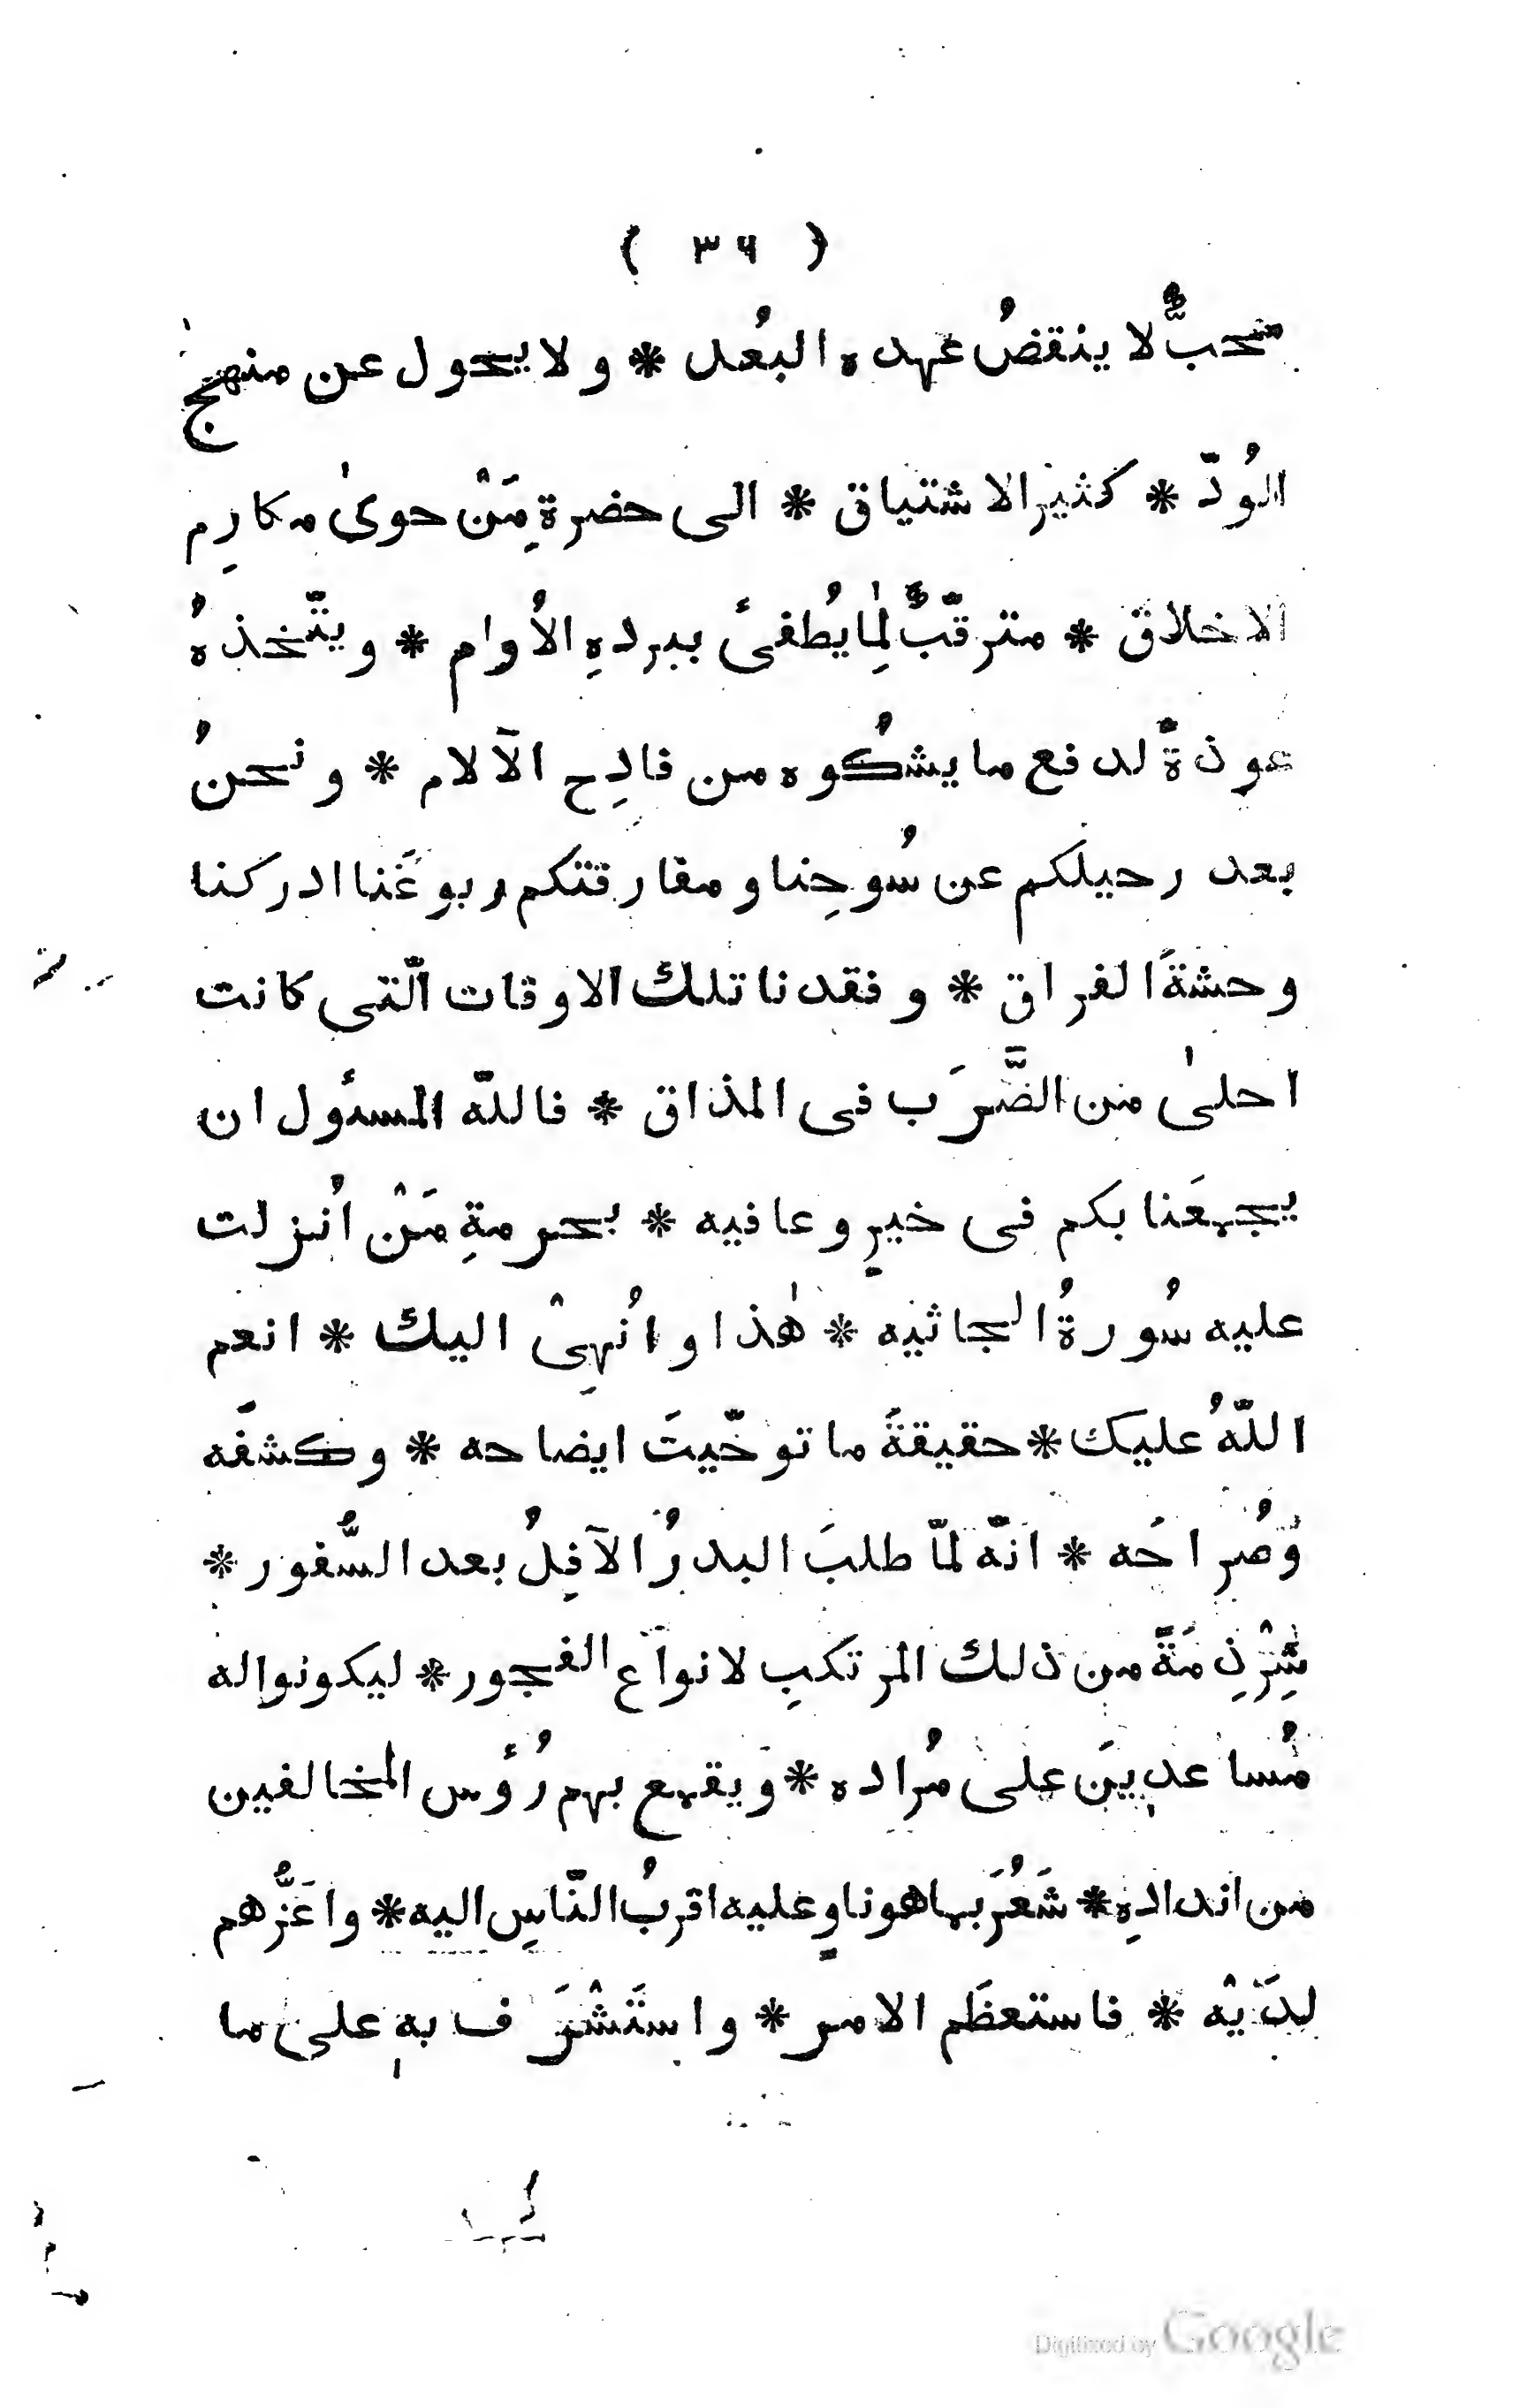 ( ٣٦ )
محبٌّ لا ينقضُ عهده البُعد * ولا يحول عن منهج
الوُدّ * كثير الاشتياق * الى حضرةِ مَنْ حوىٰ مكارِم
الاخلاق * مترقّبٌ لِمٰا يُطفئ ببردهِ الاُوام * ويتّخذهُ
عوذةً لدفع ما يشكُوه من فادِح الآلام * ونحنُ
بعد رحيلكم عن سُوحِنا ومفارقتكم ربوعَنا ادركنا
وحشةَ الفراق * وفقدنا تلك الاوقات الّتى كانت
احلىٰ من الضَّرَب فى المذاق * فاللّه المسئول ان
يجمعَنا بكم فى خيرٍ وعافيه * بحرمةِ مَنْ اُنزلت
عليه سُورةُ الجاثيه * هٰذا واُنهِىْ اليك * انعم
اللّهُ عليك * حقيقةَ ما توخّيتَ ايضاحه * وكشفَه
وصُراحَه * انّه لمّا طلبَ البدرُ الآفِلُ بعد السُّفور *
شِرْذِمَةً من ذلك المرتكبِ لانواع الفجور * ليكونوا له
مُساعدِينَ على مُراده * ويقمع بهم رُؤس المخالفين
من اندادِه * شَعُرَ بما هو ناوٍ عليه اقربُ النّاسِ اليه * واعَزُّهم
لدَيْه * فاستعظَم الامر * واستَشْرَف بهٖ على ما
Digitized by Google